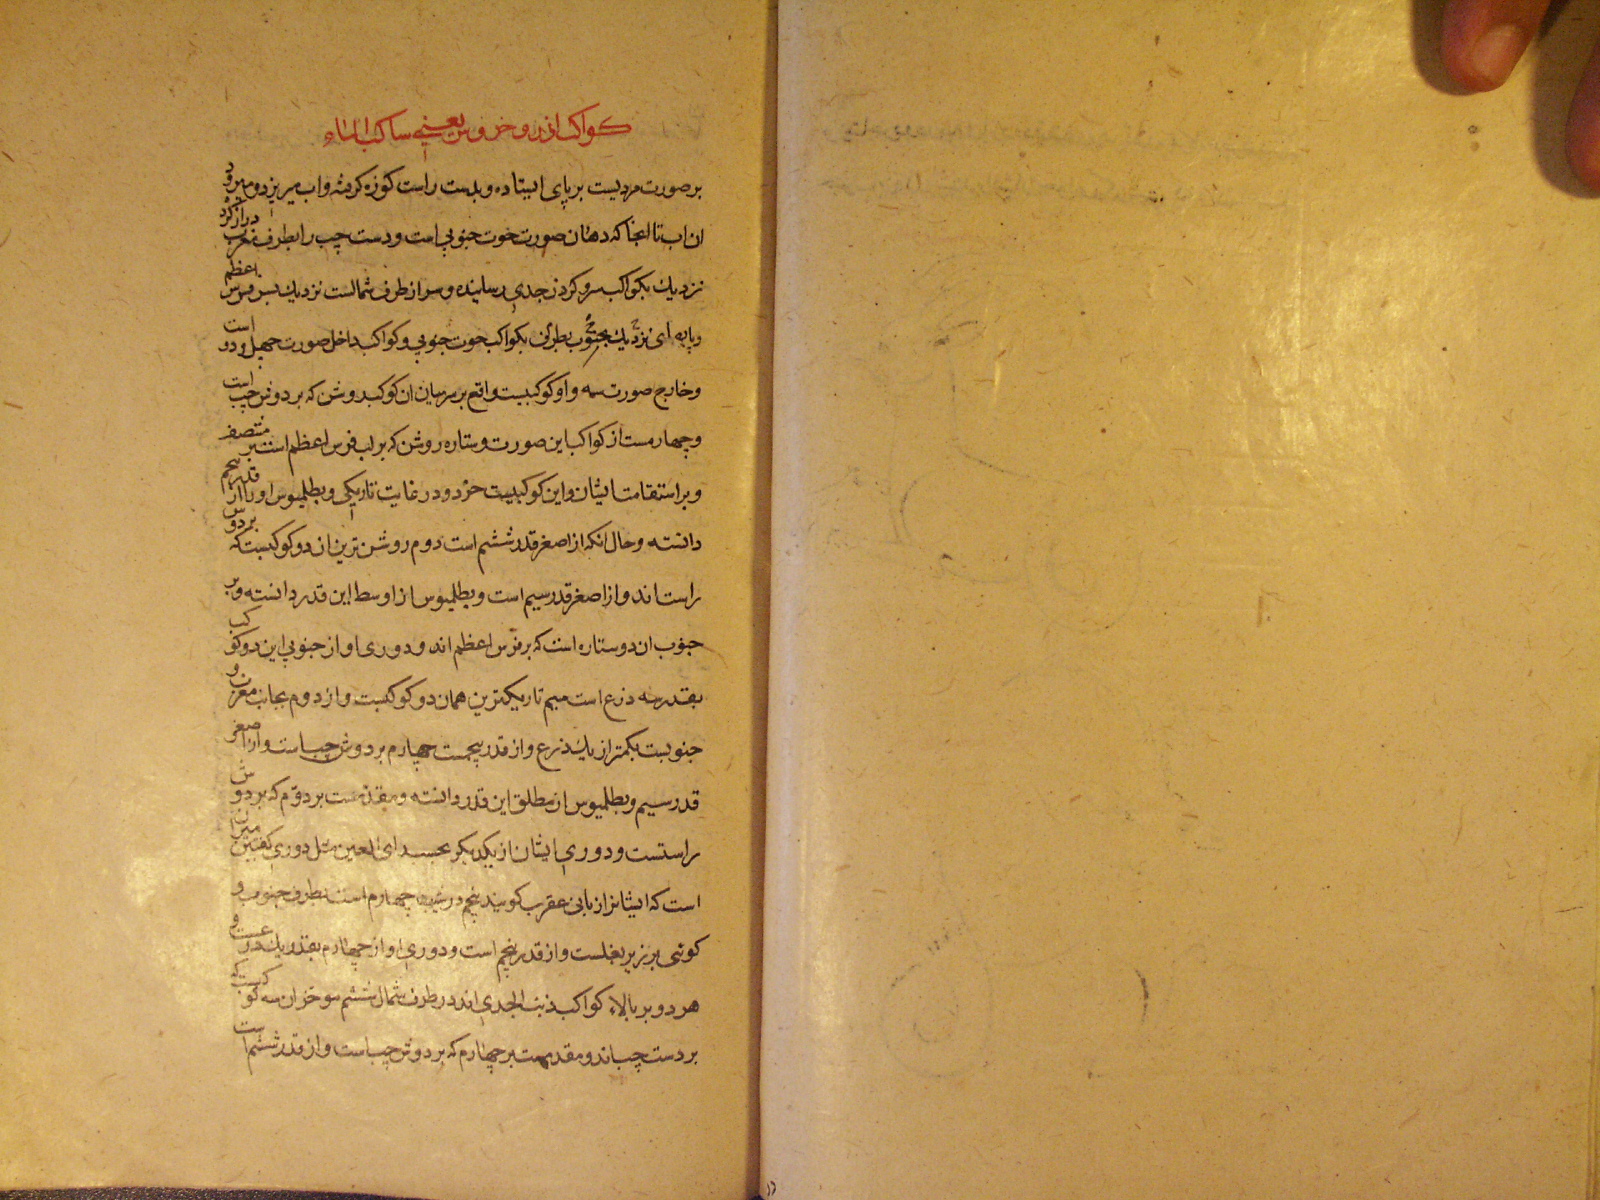 کواکب اندروخروس یعنی ساکب الماء
بر صورت مردیست بر پای ایستاده و بدست راست کوزه کرفته و اب میریزد و میرود
ان اب تا انجا که دهان صورت حوت جنوبی است و دست چپ را بطرف مغرب دراز کرده
نزدیک بکواکب سرو کردن جدی رسانیده و سر از طرف شمالست نزدیک بسر فرس اعظم
و پایهای نزدیک بجنوب بطرف بکواکب حوت جنوبی و کواکب داخل صورت چهل و دو است
و خارج صورت سه و او کوکبیست واقع بر میان ان کوکب روشن که بر دوش چپ است
و چهارمست از کواکب این صورت و ستاره روشن که بر لب فرس اعظم است بر منتصف
و بر استقامت ایشان و این کوکبیست خرد و در غایت تاریکی و بطلمیوس او را از قدر پنجم
دانسته و حال انکه از اصغر قدر ششم است دوم روشن‌ترین ان دو کوکبست که بر دوش
راست اند و از اصغر قدر سیم است و بطلمیوس از اوسط این قدر دانسته و بر
جنوب ان دو ستاره است که بر فرس اعظم اند و دوری او از جنوبی این دو کوکب
بقدر سه ذرع است سیم تاریکترین همان دو کوکبست و از دوم بجانب مغرب و
جنوبست بکمتر از یک ذرع و از قدر پنجمست چهارم بر دوش چپ است و از اصغر
قدر سیم و بطلمیوس از مطلق این قدر دانسته و مقدمست بر دوم که بر دوش
راستست و دوری ایشان از یکدیکر بحسب رای العین مثل دوری کفتین میزان
است که ایشانرا زبانی عقرب کویند پنجم در شیب چهارم است بطرف جنوب و
کوئی بر زیر بغلست و از قدر پنجم است و دوری او از چهارم بقدر یک ذرعست و
هر دو بر بالاء کواکب ذنب الجدی اند در طرف شمال ششم موخر ان سه کوکبست که
بر دست چپ اند و مقدمست بر چهارم که بر دوش چپ است و از قدر ششم است